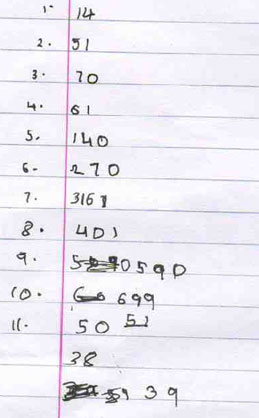 1. 14
2. 51
3. 70
4. 61
5. 140
6. 270
7. 3161
8. 401
9. 590
10. 699
11. 50 51
38
39